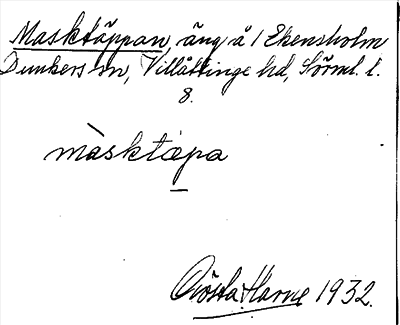 Masktäppan, äng å / Ekensholm
Dunkers sn, Villåttinge hd, Sörml. l.
8.
màsktæpa
Gösta Harne 1932.